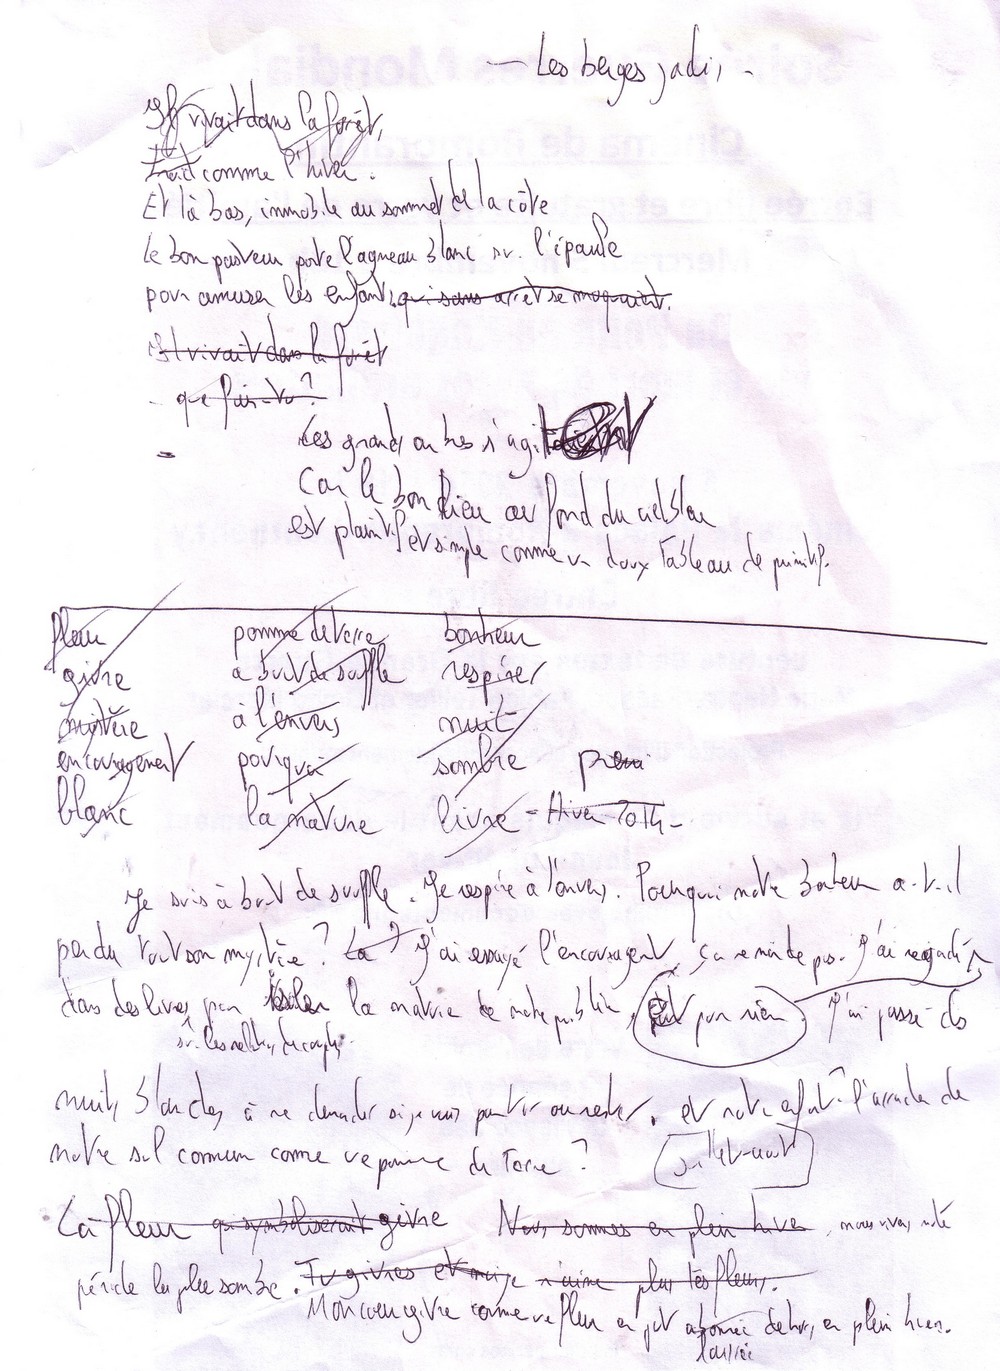 - Les berges jadis -
Il vivait dans la forêt,
Tout comme l'hiver.
Et là bas, immobile au sommet de la côte
Le bon pasteur porte l'agneau blanc sur l'épaule
pour amuser les enfants qui sans arrêt se moquaient.
Il vivait dans la forêt
- que fais-tu ?
Les grands arbres s'agitaient
Car le bon Dieu au fond du ciel bleu
est plaintif et simple comme un doux tableau de primitif.
fleur pomme de terre bonheur
givre à bout de souffle respirer
mystère à l'envers nuit
encouragement pourquoi sombre
blanc la nature livre - Hiver 2014 -
Je suis à bout de souffle. Je respire à l'envers. Pourquoi notre bonheur a-t-il
perdu tout son mystère ? La ? J'ai essayé l'encouragement, ça ne marche pas. J'ai regardé
dans des livres, pour la nature de notre problème, pour rien. J'ai passé des
sur les relations de couple,
nuits blanches à me demander si je vais partir ou rester. et notre enfant ? l'arracher de
notre sol commun comme une pomme de terre ?
La fleur qui symboliserait givre Nous sommes en plein hiver, nous vivons notre
période la plus sombre. Tu givres et moi je n'aime plus tes fleurs.
Mon coeur givre comme une fleur en pot abonnée dehors, en plein hiver.
laissée